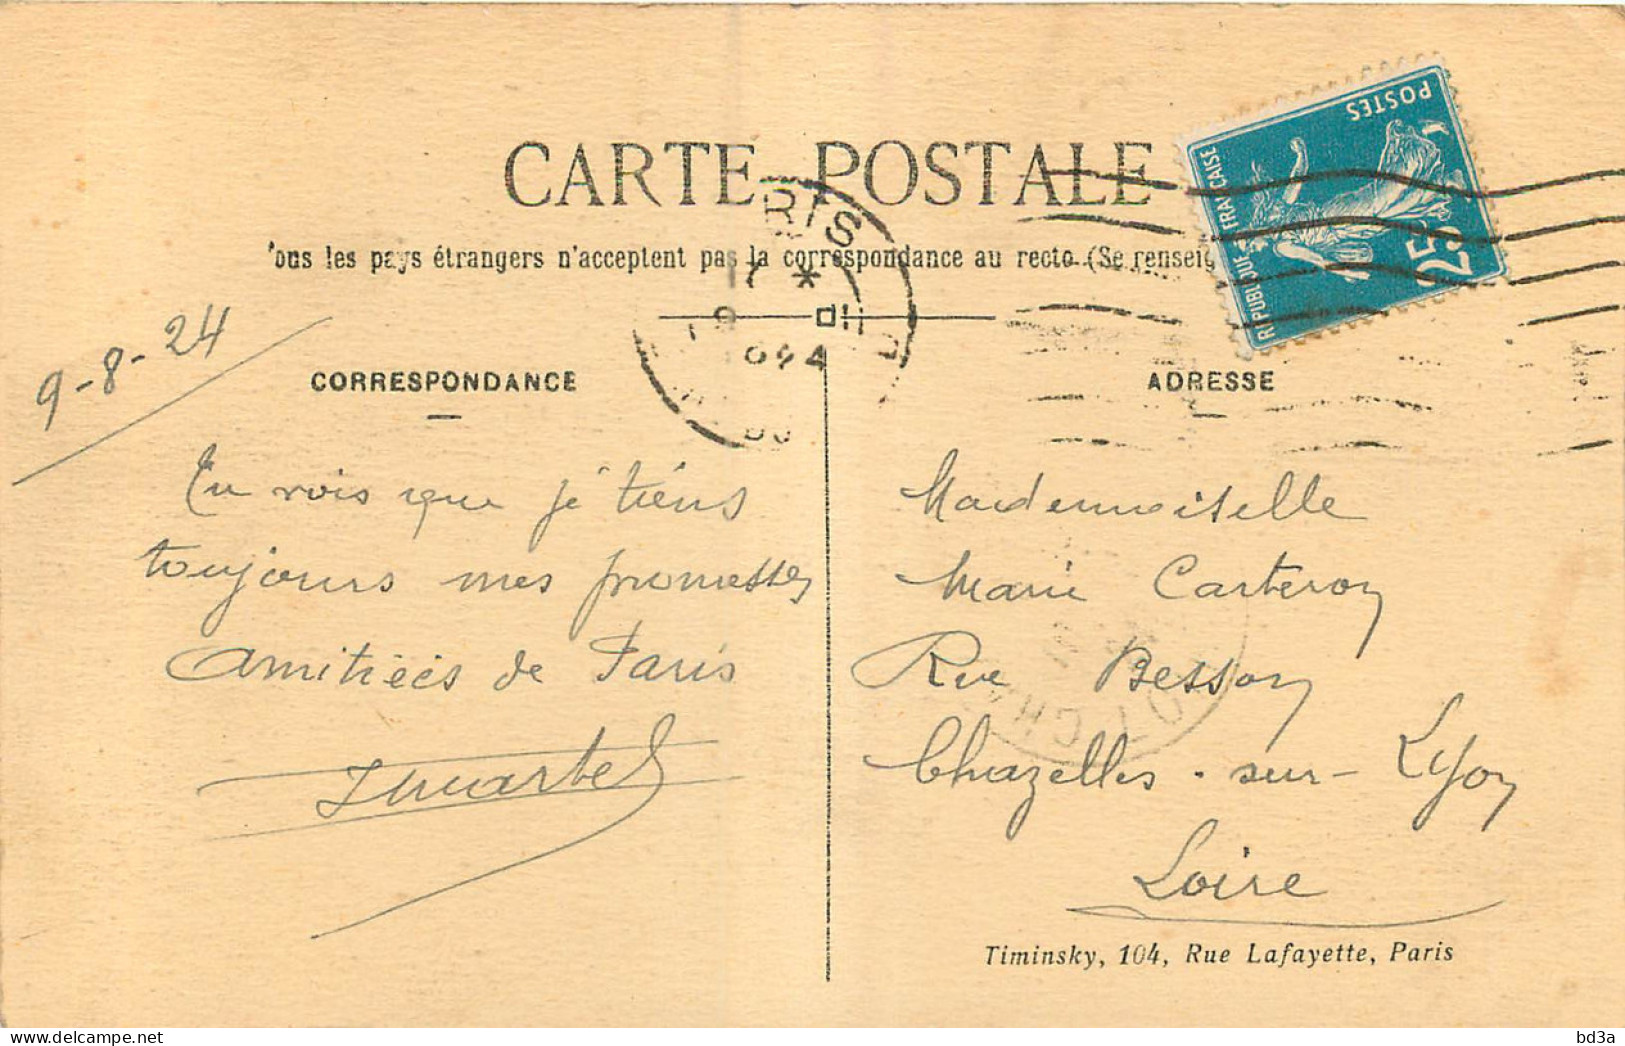 CARTE POSTALE
ous les pays étrangers n'acceptent pas la correspondance au recto (Se renseig
POSTES
REPUBLIQUE FRANÇAISE
25
RIS
9-8-24
CORRESPONDANCE
ADRESSE
Tu vois que je tiens
toujours mes promesses
Amitiées de Paris
Mademoiselle
Marie Carteron
Rue Besson
Chazelles-sur-Lyon
Loire
Timinsky, 104, Rue Lafayette, Paris
bd3a